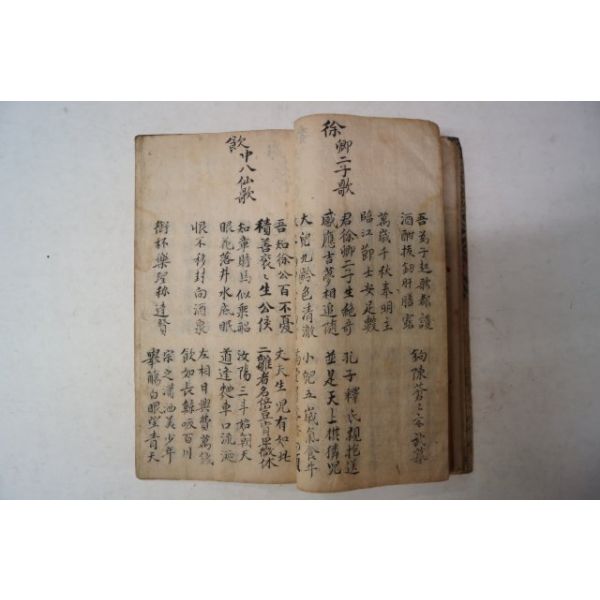 吾為子起歌都護
酒酣拔釼肝膽露
鉤陳蒼〻玄武暮
萬歲千秋奉明主
臨江節士安足數
徐卿二子歌
君徐卿二子生絕奇
感應吉夢相追隨
孔子釋氏親抱送
並是天上猉獜兒
大兒九齡色清澈
小兒五歲氣食牛
吾知徐公百不憂
積善袞〻生公侯
丈夫生兒有如此
二雛者名位豈肯卑微休
飲中八仙歌
知章騎馬似乘船
眼花落井水底眠
汝陽三斗始朝天
道逢麯車口流涎
恨不移封向酒泉
左相日興費萬錢
飲如長鯨吸百川
銜杯樂聖稱達賢
宗之瀟洒美少年
擧觴白眼望青天